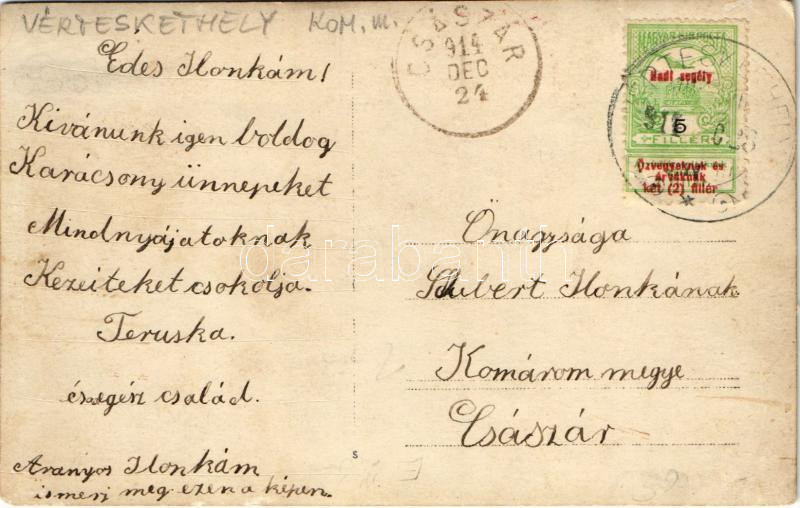 VÉRTESKETHELY KOM. m.
Édes Ilonkám!
Kivánunk igen boldog
Karácsony ünnepeket
Mindnyájatoknak
Kezeiteket csokolja.
Teruska.
és egész család.
Aranyos Ilonkám
ismerj meg ezen a képen.
CSÁSZÁR
914
DEC
24
MAGYAR KIR. POSTA
Hadi segély
5
FILLÉR
Özvegyeknek és
árváknak
két (2) fillér
Önagysága
Subert Ilonkának
Komárom megye
Császár
S
darabanth